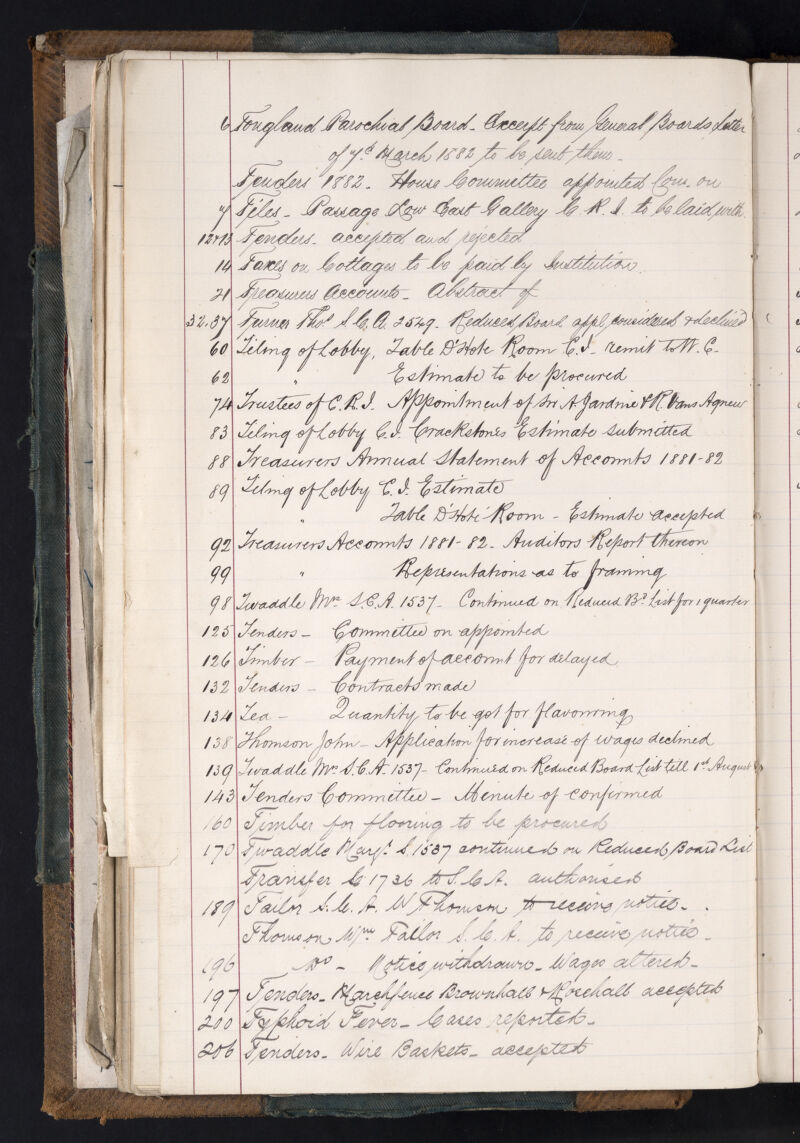 6 Tongland Parochial Board - Excerpt from General Boards Letter
of 7th March 1882 to be sent them -
Tenders 1882 - House Committee appointed Com. on
7 Tiles - Passage Low East Gallery C. R. I. to be laid with
12+13 Tenders - accepted and rejected
14 Taxes on Cottages to be paid by Institution
21 Treasurers Accounts - Abstract of
32.37 Turner Thos S. C. A. 2549 - Reduced Board appl. considered & declined
60 Tiling of Lobby, Table D'Hote Room C.I. - remit to W. C.
62 " Estimate to be procured
74 Trustees of C. R. I. Appointment of Sir A Jardine & R. Vans Agnew
83 Tiling of Lobby C.I. Crackstones Estimate submitted
88 Treasurers Annual Statement of Accounts 1881-82
89 Tiling of Lobby C. I. Estimate
" Table D'Hote Room - Estimate accepted
92 Treasurers Accounts 1881-82 - Auditors Report thereon
99 " Representations as to framing
98 Twaddle Mrs. S.C.A. 1537 - Continued on Reduced Bd. List for 1 quarter
125 Tenders - Committee on appointed
126 Timber - Payment of account for delayed
132 Tenders - Contracts made
134 Tea - Quantity to be got for flavouring
138 Thomson John - Application for increase of wages declined
139 Twaddle Mrs. S.C.A. 1537 - Continued on Reduced Board List till 1st August
143 Tenders Committee - Menute of confirmed
160 Timber for flooring to be procured
170 Twaddle Margt. S. 1537 continued on Reduced Board List
Transfer C 1736 to S. C. A. authorised
189 Tailor S. C. A. W Thomson to receive notice -
Thomson Wm Tailor S. C. A. to receive notice -
196 Do - Notice withdrawn - Wages altered -
197 Tenders - Marchfence Brownhall & Rosehall accepted
200 Typhoid Fever - Cases reported -
206 Tenders - Wire Baskets - accepted